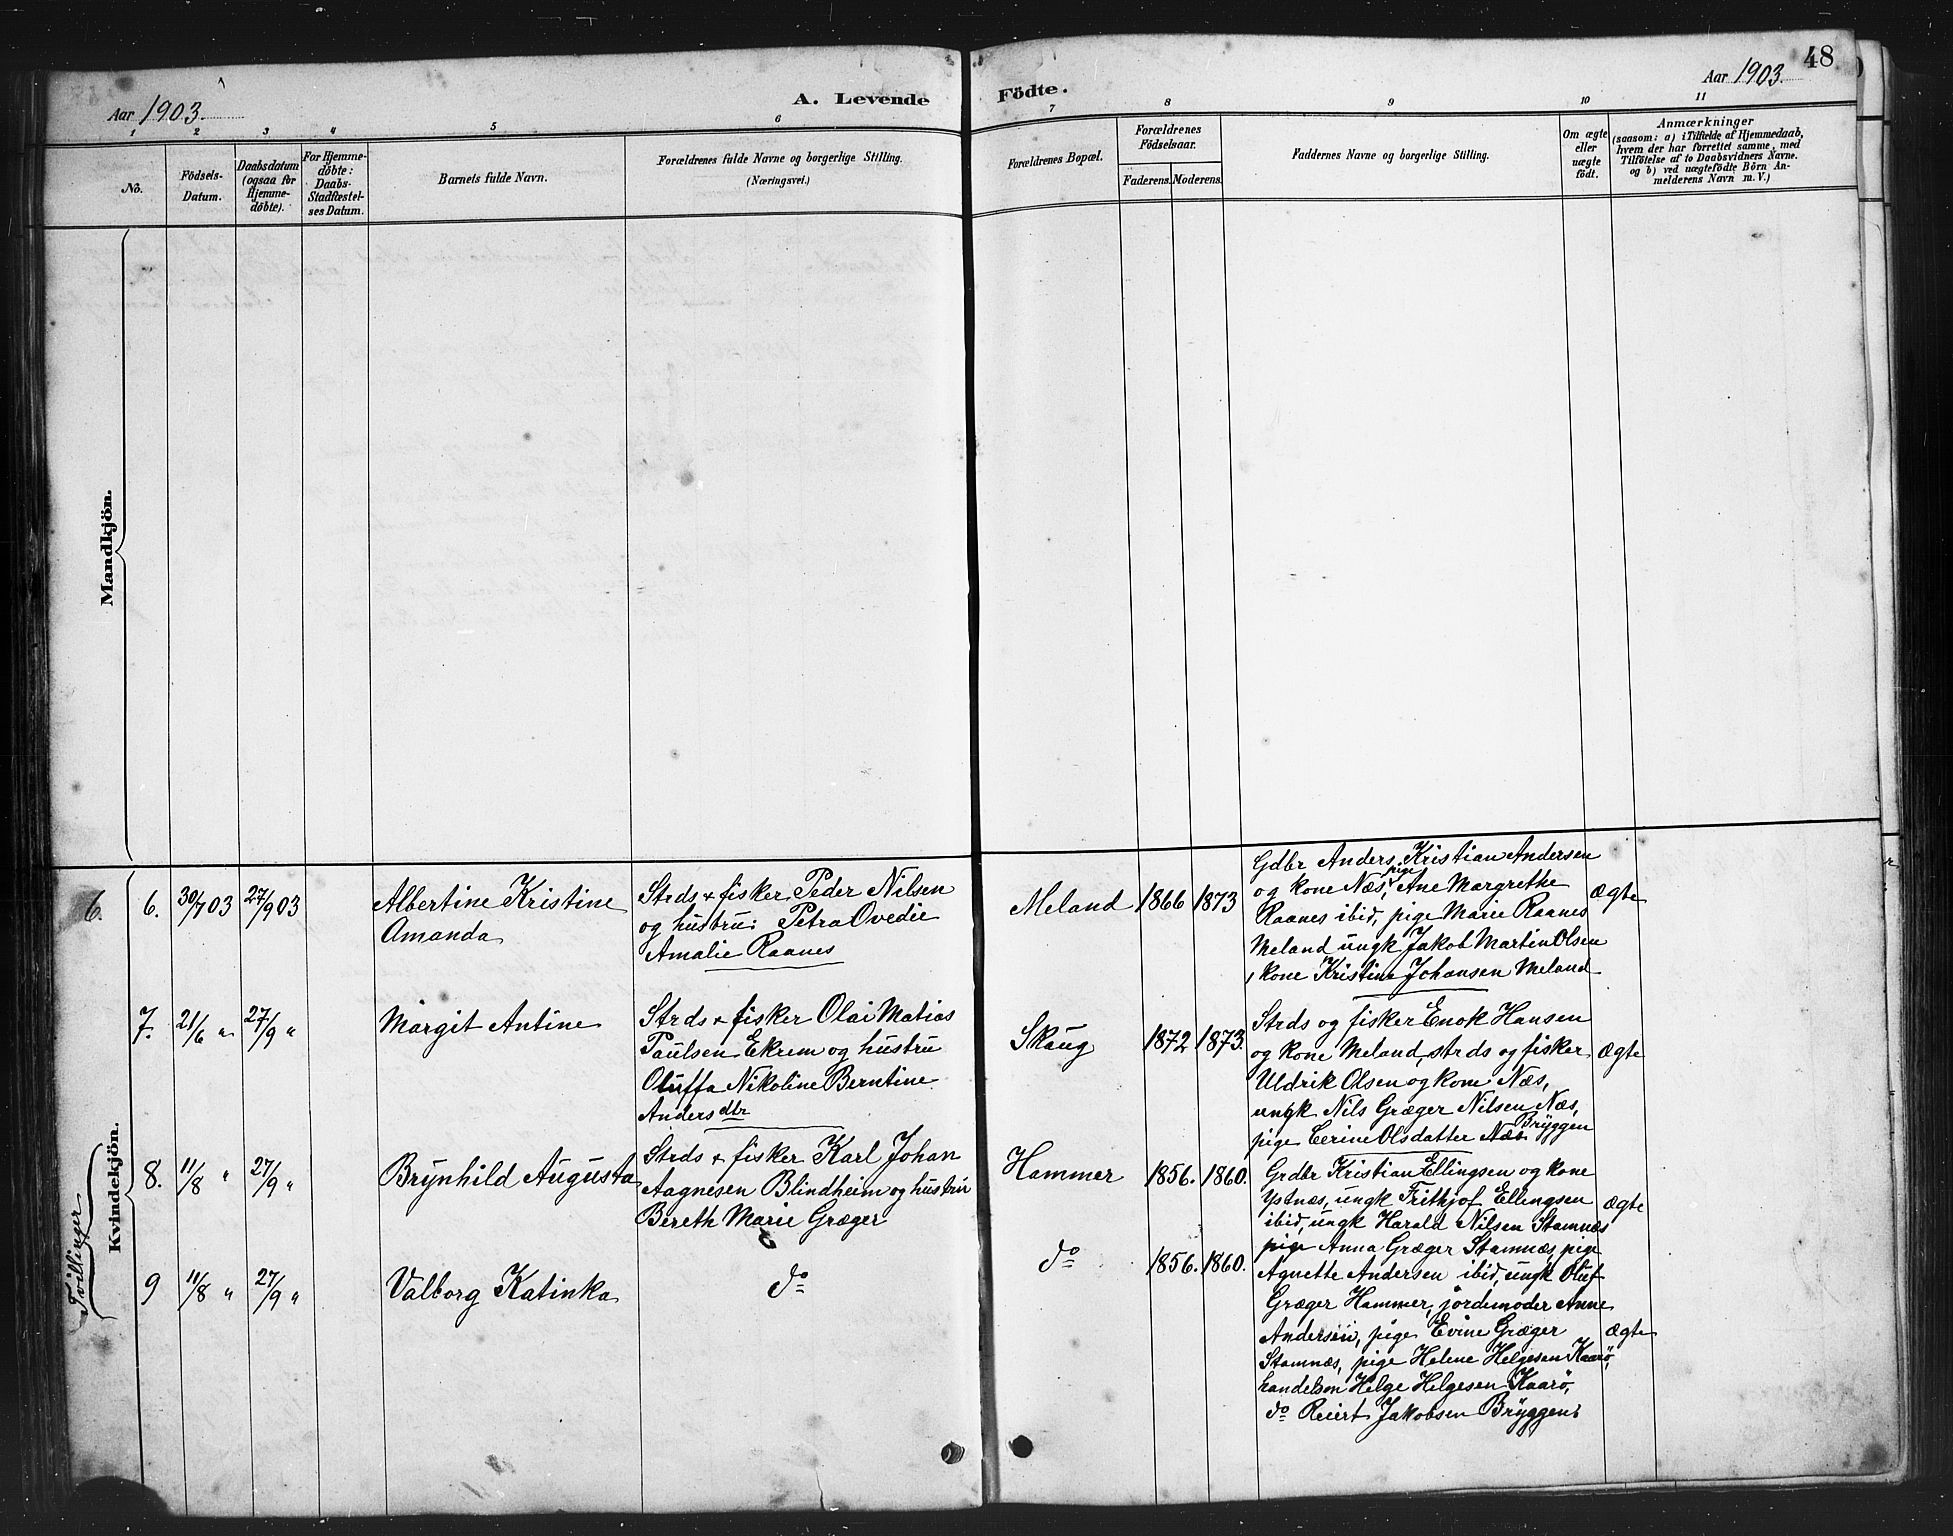 48
Aar 1903.
A. Levende
Födte.
Aar 1903.
1 2 3 4 5 6 7 8 9 10 11
No.
Födsels-
Datum.
Daabsdatum
(ogsaa for
Hjemme-
döbte).
For Hjemme-
döbte:
Daabs-
Stadfæstel-
ses Datum.
Barnets fulde Navn.
Forældrenes fulde Navne og borgerlige Stilling.
(Næringsvei.)
Forældrenes Bopæl.
Forældrenes
Födselsaar.
Faderens. Moderens.
Faddernes Navne og borgerlige Stilling.
Om ægte
eller
uægte
födt.
Anmærkninger
(saasom: a) i Tilfælde af Hjemmedaab,
hvem der har forrettet samme, med
Tilföielse af to Daabsvidners Navne.
og b) ved uægtefödte Börn An-
melderens Navn m. V.)
Mandkjön.
Kvindekjön.
6. 6. 30/7 03 27/9 03
Albertine Kristine
Amanda
Strds + fisker Peder Nilsen
og hustru: Petra Ovedie
Amalie Raanes
Meland 1866 1873
Gdbr Anders Kristian Andersen
og kone Næs, pige Ane Margrethe
Raanes ibid, pige Marie Raanes
Meland ungk Jakob Martin Olsen
, kone Kristine Johansen Meland
ægte
7. 21/6 " 27/9 "
Margit Antine
Strds + fisker Olai Matias
Paulsen Ekrem og hustru
Oluffa Nikoline Berntine
Andersdtr
Skaug 1872 1873.
Strds og fisker Enok Hansen
og kone Meland, strds og fisker
Uldrik Olsen og kone Næs,
ungk Nils Græger Nilsen Næs,
pige Cerine Olsdatter Næs Bryggen
ægte
Tvillinger
8. 11/8 " 27/9 "
Brynhild Augusta
Strds + fisker Karl Johan
Aagnesen Blindheim og hustru
Bereth Marie Græger
Hammer 1856. 1860.
Grdbr Kristian Ellingsen og kone
Ystnæs, ungk Frithjof Ellingsen
ibid, ungk Harald Nilsen Stamnæs
pige Anna Græger Stamnæs, pige
Agnette Andersen ibid, ungk Oluf
Græger Hammer, jordemoder Anne
Andersen, pige Evine Græger
Stamnæs, pige Helene Helgesen Kaarø,
handelsm Helge Helgesen Kaarø,
do Reiert Jakobsen Bryggen.
ægte
9 11/8 " 27/9 "
Valborg Katinka
do
do 1856. 1860.
ægte